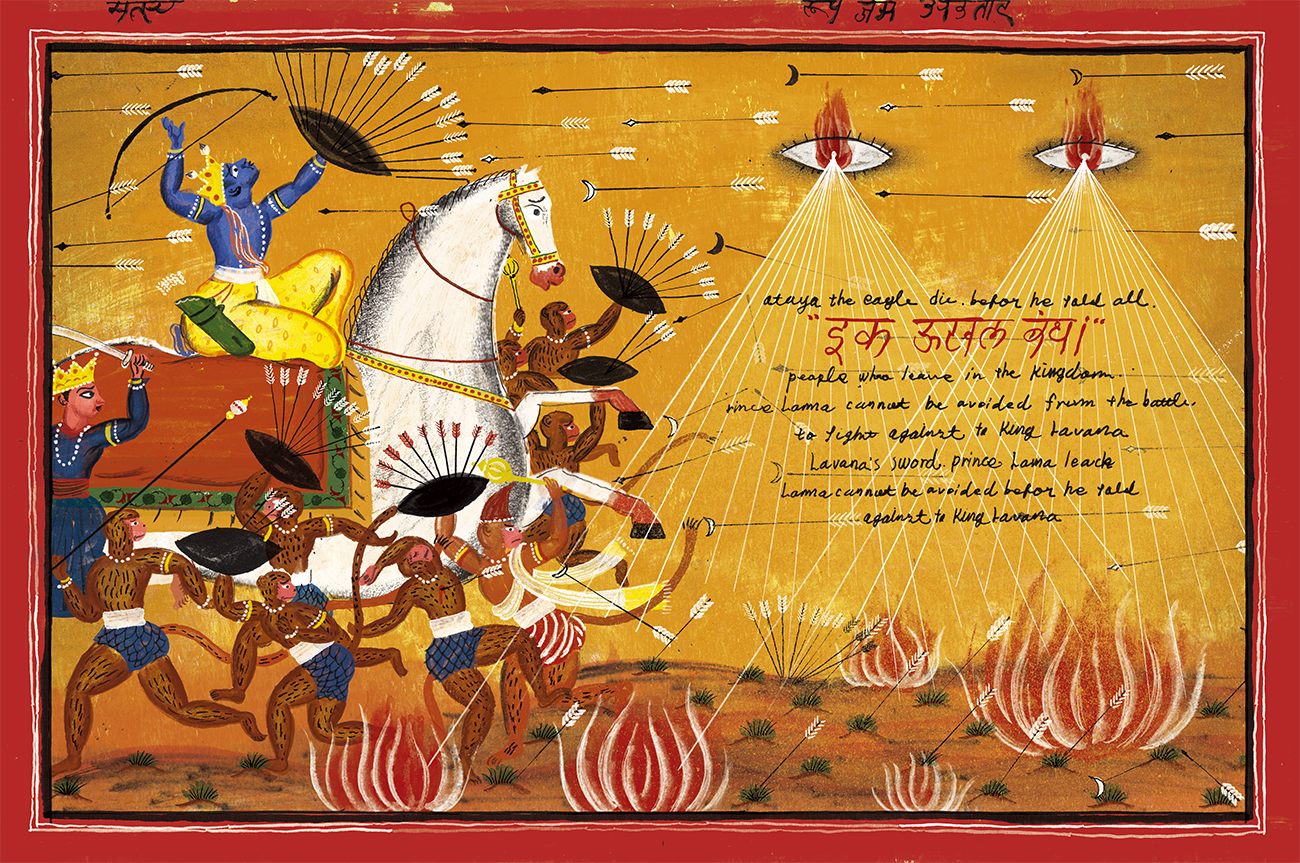 मत्स्य रूप जन्म अवतार
ataya the eagle die. befor he told all.
"इक ऊखल बंधा"
people who leave in the kingdom.
rince Lama cannot be avoided from the battle.
to fight against to King Lavana
Lavana's sword. prince Lama leack
Lama cannot be avoided befor he told
against to King Lavana